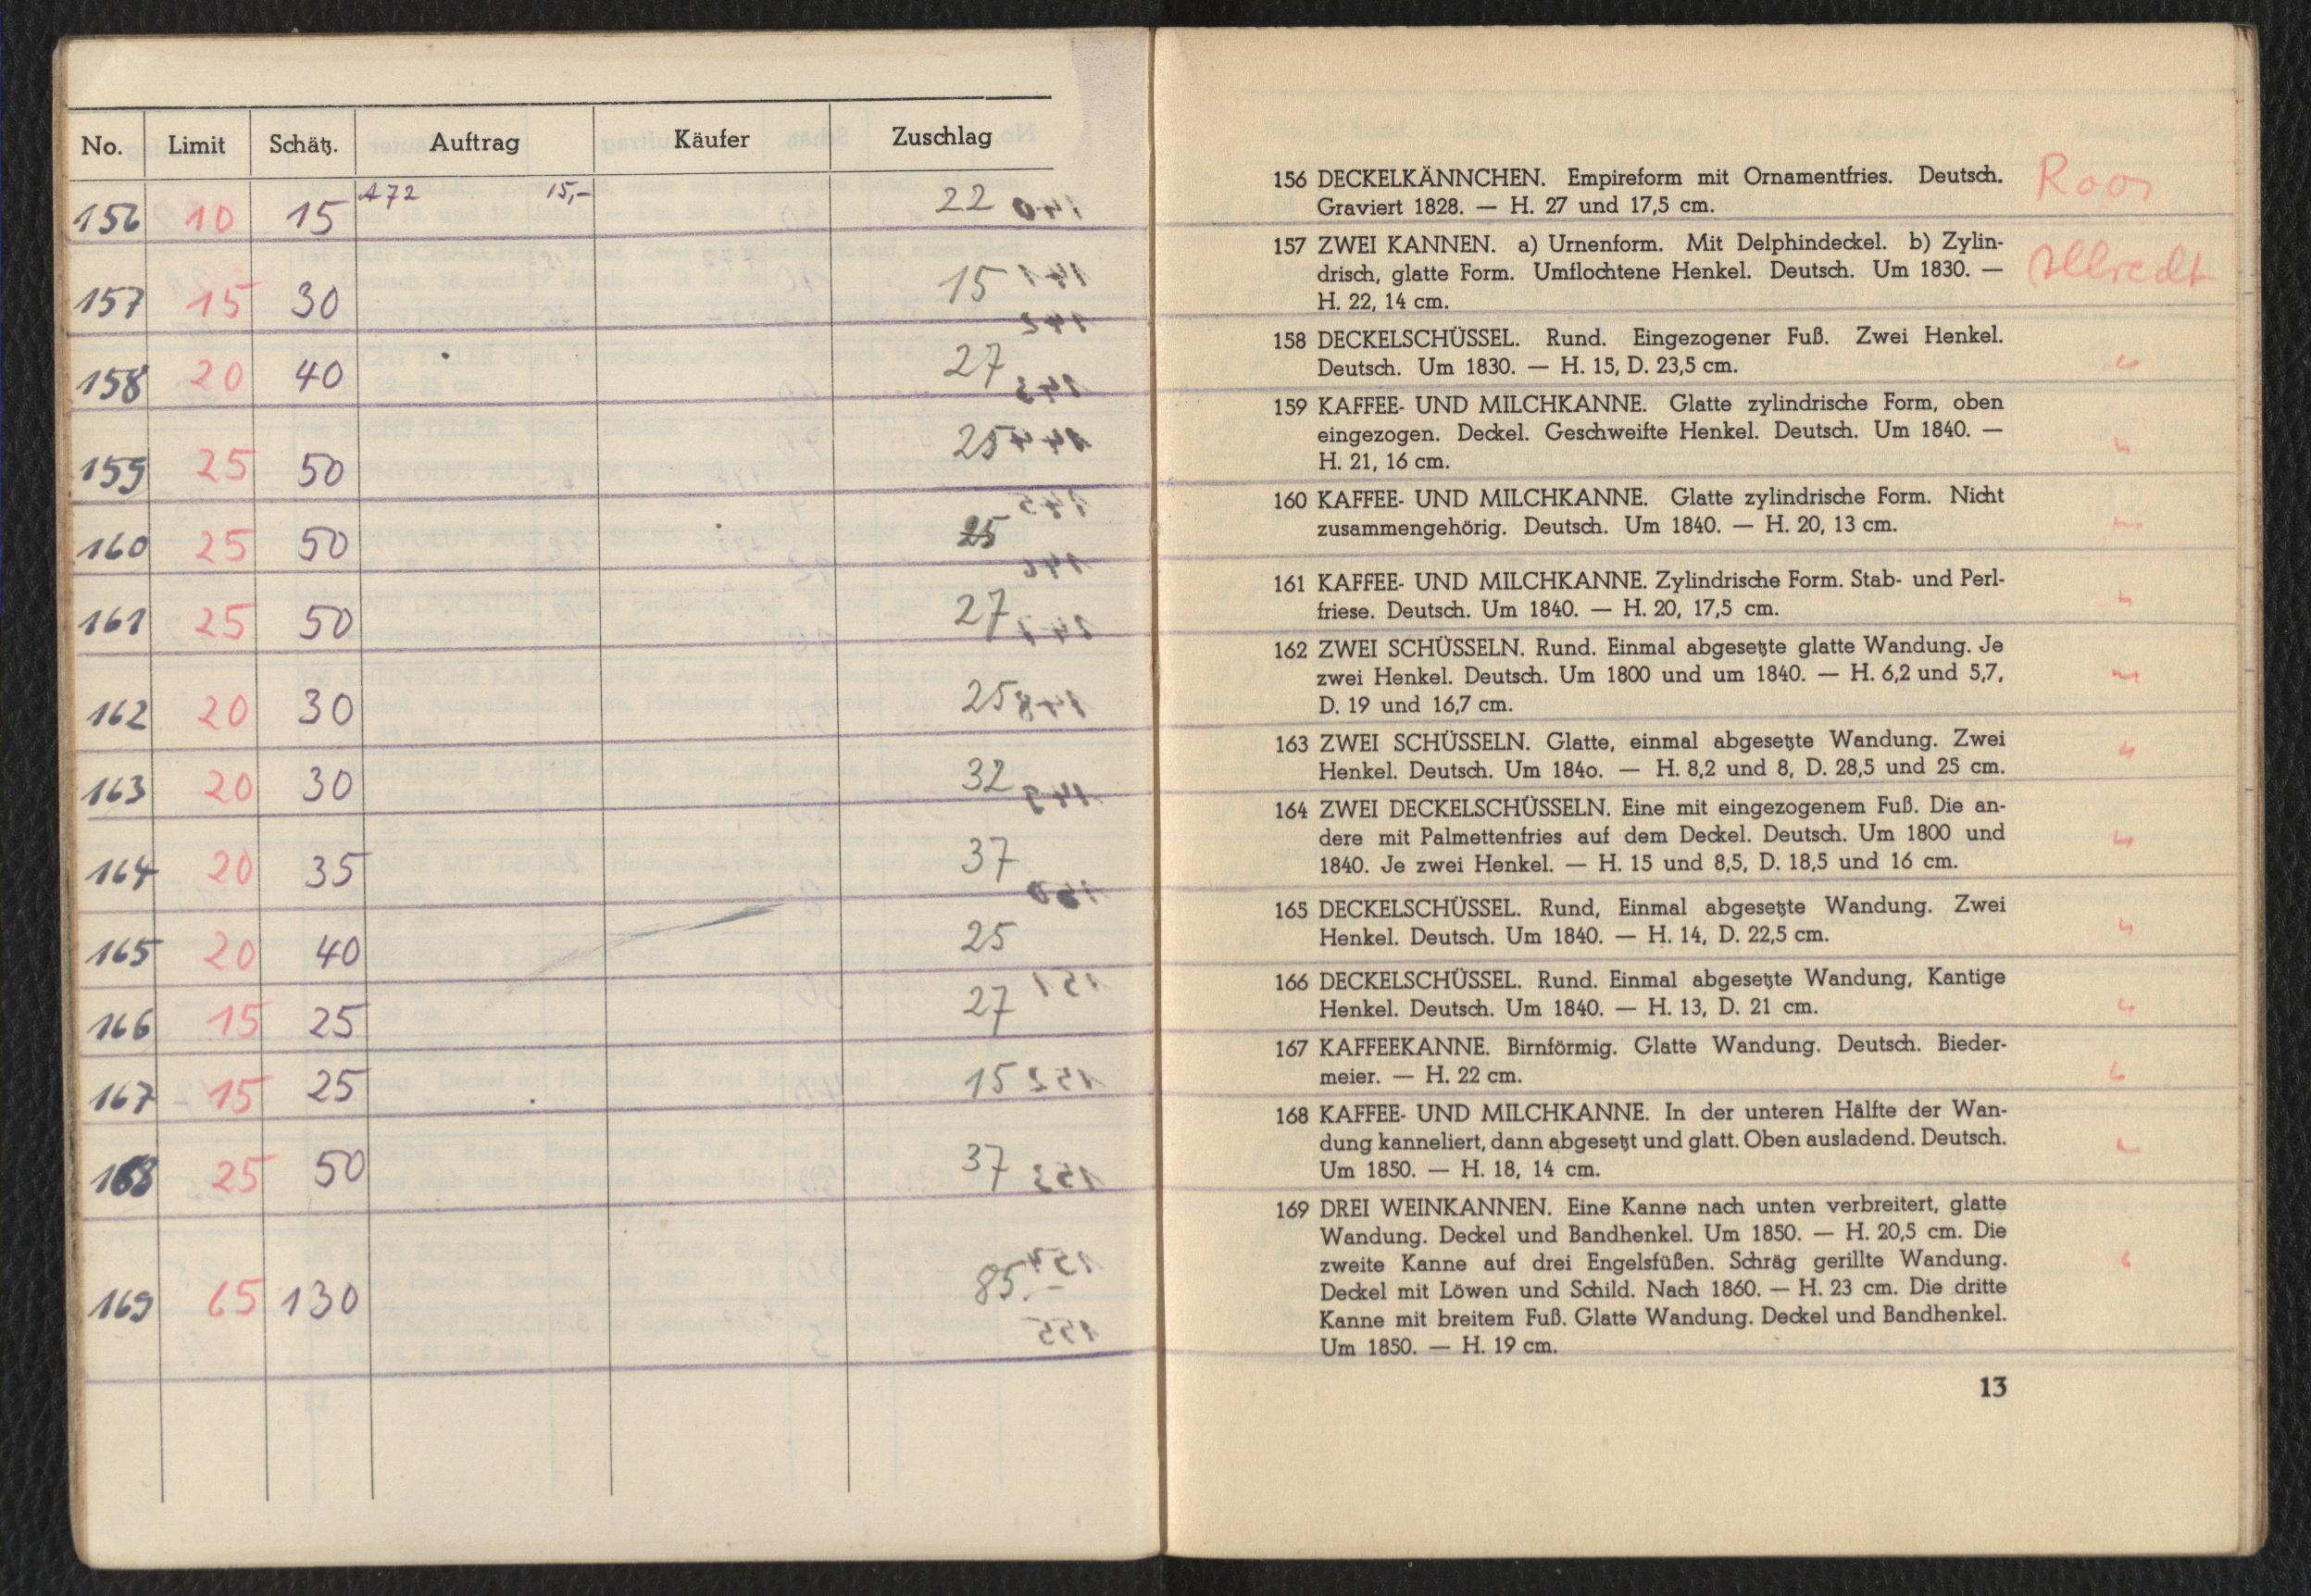 No. Limit Schätz. Auftrag Käufer Zuschlag
156 10 15 A72 15,- 22
157 15 30 15
158 20 40 27
159 25 50 25
160 25 50 25
161 25 50 27
162 20 30 25
163 20 30 32
164 20 35 37
165 20 40 25
166 15 25 27
167 15 25 15
168 25 50 37
169 65 130 85.-
156 DECKELKÄNNCHEN. Empireform mit Ornamentfries. Deutsch. Roos
Graviert 1828. — H. 27 und 17,5 cm.
157 ZWEI KANNEN. a) Urnenform. Mit Delphindeckel. b) Zylin-
drisch, glatte Form. Umflochtene Henkel. Deutsch. Um 1830. —
H. 22, 14 cm.
158 DECKELSCHÜSSEL. Rund. Eingezogener Fuß. Zwei Henkel.
Deutsch. Um 1830. — H. 15, D. 23,5 cm. "
159 KAFFEE- UND MILCHKANNE. Glatte zylindrische Form, oben
eingezogen. Deckel. Geschweifte Henkel. Deutsch. Um 1840. — "
H. 21, 16 cm.
160 KAFFEE- UND MILCHKANNE. Glatte zylindrische Form. Nicht
zusammengehörig. Deutsch. Um 1840. — H. 20, 13 cm. "
161 KAFFEE- UND MILCHKANNE. Zylindrische Form. Stab- und Perl-
friese. Deutsch. Um 1840. — H. 20, 17,5 cm. "
162 ZWEI SCHÜSSELN. Rund. Einmal abgesetzte glatte Wandung. Je
zwei Henkel. Deutsch. Um 1800 und um 1840. — H. 6,2 und 5,7, "
D. 19 und 16,7 cm.
163 ZWEI SCHÜSSELN. Glatte, einmal abgesetzte Wandung. Zwei "
Henkel. Deutsch. Um 184o. — H. 8,2 und 8, D. 28,5 und 25 cm.
164 ZWEI DECKELSCHÜSSELN. Eine mit eingezogenem Fuß. Die an-
dere mit Palmettenfries auf dem Deckel. Deutsch. Um 1800 und "
1840. Je zwei Henkel. — H. 15 und 8,5, D. 18,5 und 16 cm.
165 DECKELSCHÜSSEL. Rund, Einmal abgesetzte Wandung. Zwei
Henkel. Deutsch. Um 1840. — H. 14, D. 22,5 cm. "
166 DECKELSCHÜSSEL. Rund. Einmal abgesetzte Wandung, Kantige
Henkel. Deutsch. Um 1840. — H. 13, D. 21 cm. "
167 KAFFEEKANNE. Birnförmig. Glatte Wandung. Deutsch. Bieder-
meier. — H. 22 cm. "
168 KAFFEE- UND MILCHKANNE. In der unteren Hälfte der Wan-
dung kanneliert, dann abgesetzt und glatt. Oben ausladend. Deutsch. "
Um 1850. — H. 18, 14 cm.
169 DREI WEINKANNEN. Eine Kanne nach unten verbreitert, glatte
Wandung. Deckel und Bandhenkel. Um 1850. — H. 20,5 cm. Die
zweite Kanne auf drei Engelsfüßen. Schräg gerillte Wandung. "
Deckel mit Löwen und Schild. Nach 1860. — H. 23 cm. Die dritte
Kanne mit breitem Fuß. Glatte Wandung. Deckel und Bandhenkel.
Um 1850. — H. 19 cm.
13